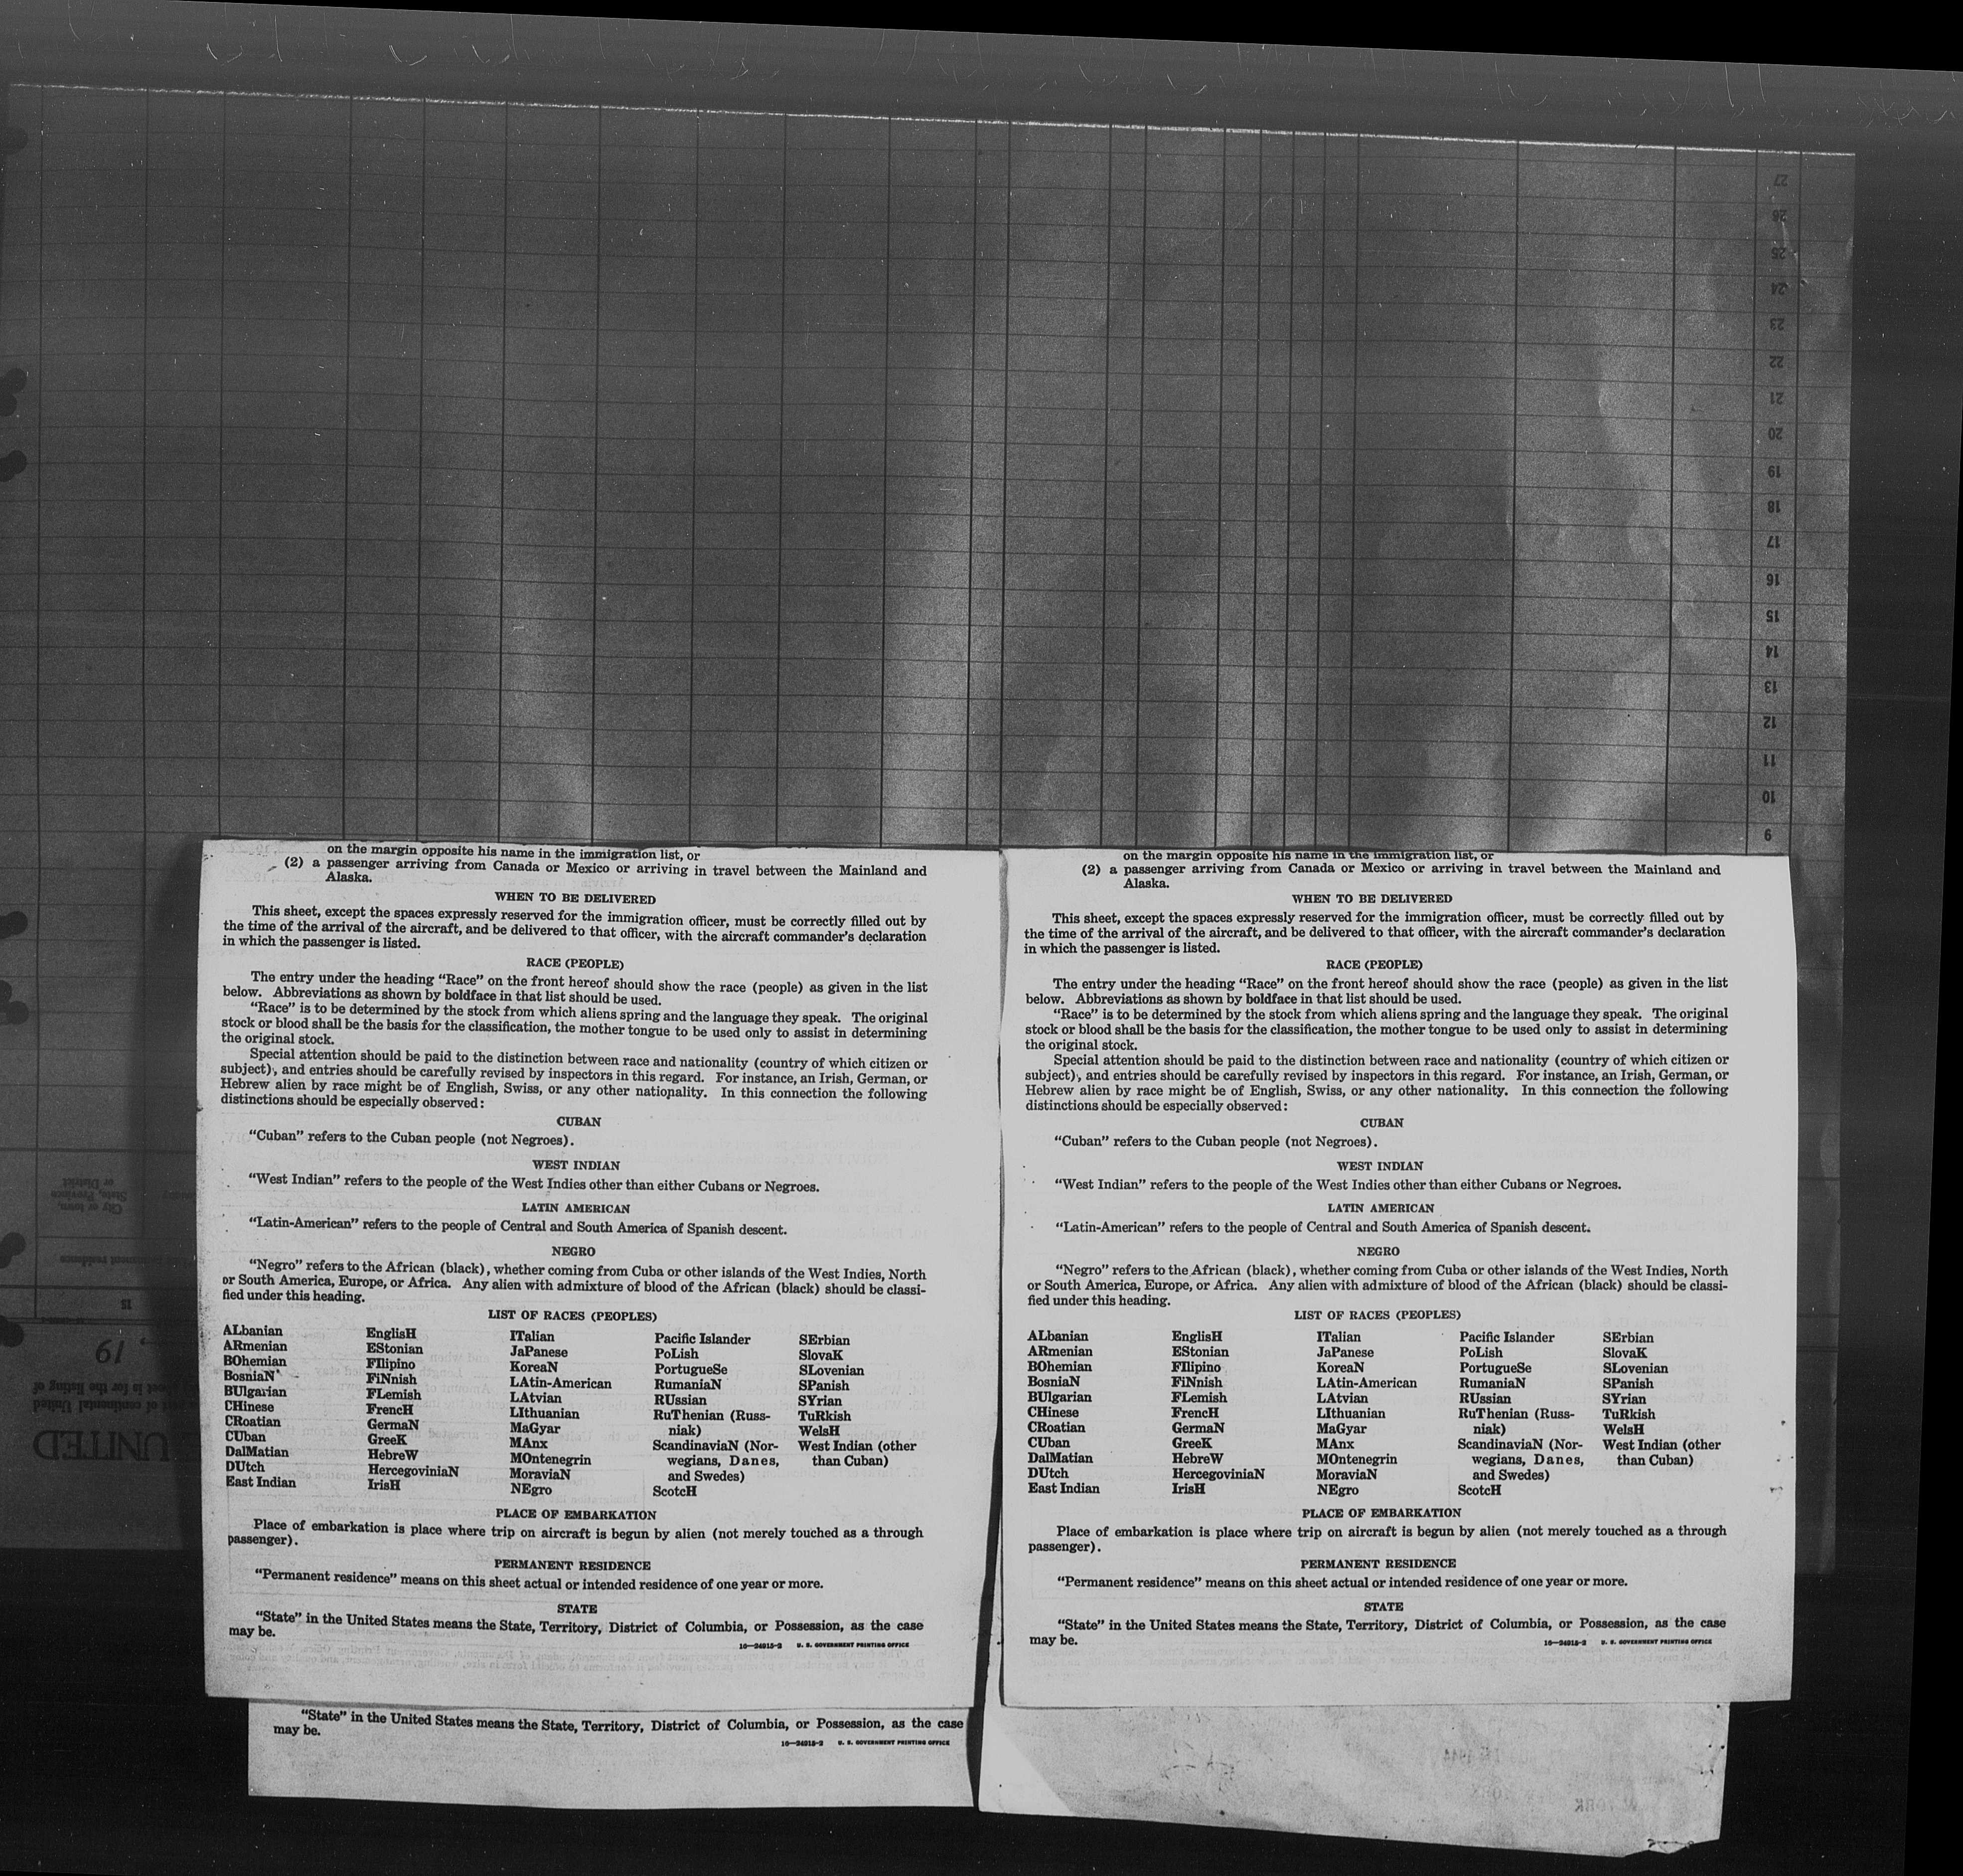 27
26
25
24
23
22
21
20
19
18
17
16
15
14
13
12
11
10
9
on the margin opposite his name in the immigration list, or
(2) a passenger arriving from Canada or Mexico or arriving in travel between the Mainland and
Alaska.
WHEN TO BE DELIVERED
This sheet, except the spaces expressly reserved for the immigration officer, must be correctly filled out by
the time of the arrival of the aircraft, and be delivered to that officer, with the aircraft commander's declaration
in which the passenger is listed.
RACE (PEOPLE)
The entry under the heading "Race" on the front hereof should show the race (people) as given in the list
below. Abbreviations as shown by boldface in that list should be used.
"Race" is to be determined by the stock from which aliens spring and the language they speak. The original
stock or blood shall be the basis for the classification, the mother tongue to be used only to assist in determining
the original stock.
Special attention should be paid to the distinction between race and nationality (country of which citizen or
subject), and entries should be carefully revised by inspectors in this regard. For instance, an Irish, German, or
Hebrew alien by race might be of English, Swiss, or any other nationality. In this connection the following
distinctions should be especially observed:
CUBAN
"Cuban" refers to the Cuban people (not Negroes).
WEST INDIAN
"West Indian" refers to the people of the West Indies other than either Cubans or Negroes.
LATIN AMERICAN
"Latin-American" refers to the people of Central and South America of Spanish descent.
NEGRO
"Negro" refers to the African (black), whether coming from Cuba or other islands of the West Indies, North
or South America, Europe, or Africa. Any alien with admixture of blood of the African (black) should be classi-
fied under this heading.
LIST OF RACES (PEOPLES)
ALbanian
ARmenian
BOhemian
BosniaN
BUlgarian
CHinese
CRoatian
CUban
DalMatian
DUtch
East Indian
EnglisH
EStonian
FIlipino
FiNnish
FLemish
FrencH
GermaN
GreeK
HebreW
HercegoviniaN
IrisH
ITalian
JaPanese
KoreaN
LAtin-American
LAtvian
LIthuanian
MaGyar
MAnx
MOntenegrin
MoraviaN
NEgro
Pacific Islander
PoLish
PortugueSe
RumaniaN
RUssian
RuThenian (Russ-
niak)
ScandinaviaN (Nor-
wegians, Danes,
and Swedes)
ScotcH
SErbian
SlovaK
SLovenian
SPanish
SYrian
TuRkish
WelsH
West Indian (other
than Cuban)
PLACE OF EMBARKATION
Place of embarkation is place where trip on aircraft is begun by alien (not merely touched as a through
passenger).
PERMANENT RESIDENCE
"Permanent residence" means on this sheet actual or intended residence of one year or more.
STATE
"State" in the United States means the State, Territory, District of Columbia, or Possession, as the case
may be.
16—24915-2 U. S. GOVERNMENT PRINTING OFFICE
"State" in the United States means the State, Territory, District of Columbia, or Possession, as the case
may be.
16—24915-2 U. S. GOVERNMENT PRINTING OFFICE
on the margin opposite his name in the immigration list, or
(2) a passenger arriving from Canada or Mexico or arriving in travel between the Mainland and
Alaska.
WHEN TO BE DELIVERED
This sheet, except the spaces expressly reserved for the immigration officer, must be correctly filled out by
the time of the arrival of the aircraft, and be delivered to that officer, with the aircraft commander's declaration
in which the passenger is listed.
RACE (PEOPLE)
The entry under the heading "Race" on the front hereof should show the race (people) as given in the list
below. Abbreviations as shown by boldface in that list should be used.
"Race" is to be determined by the stock from which aliens spring and the language they speak. The original
stock or blood shall be the basis for the classification, the mother tongue to be used only to assist in determining
the original stock.
Special attention should be paid to the distinction between race and nationality (country of which citizen or
subject), and entries should be carefully revised by inspectors in this regard. For instance, an Irish, German, or
Hebrew alien by race might be of English, Swiss, or any other nationality. In this connection the following
distinctions should be especially observed:
CUBAN
"Cuban" refers to the Cuban people (not Negroes).
WEST INDIAN
"West Indian" refers to the people of the West Indies other than either Cubans or Negroes.
LATIN AMERICAN
"Latin-American" refers to the people of Central and South America of Spanish descent.
NEGRO
"Negro" refers to the African (black), whether coming from Cuba or other islands of the West Indies, North
or South America, Europe, or Africa. Any alien with admixture of blood of the African (black) should be classi-
fied under this heading.
LIST OF RACES (PEOPLES)
ALbanian
ARmenian
BOhemian
BosniaN
BUlgarian
CHinese
CRoatian
CUban
DalMatian
DUtch
East Indian
EnglisH
EStonian
FIlipino
FiNnish
FLemish
FrencH
GermaN
GreeK
HebreW
HercegoviniaN
IrisH
ITalian
JaPanese
KoreaN
LAtin-American
LAtvian
LIthuanian
MaGyar
MAnx
MOntenegrin
MoraviaN
NEgro
Pacific Islander
PoLish
PortugueSe
RumaniaN
RUssian
RuThenian (Russ-
niak)
ScandinaviaN (Nor-
wegians, Danes,
and Swedes)
ScotcH
SErbian
SlovaK
SLovenian
SPanish
SYrian
TuRkish
WelsH
West Indian (other
than Cuban)
PLACE OF EMBARKATION
Place of embarkation is place where trip on aircraft is begun by alien (not merely touched as a through
passenger).
PERMANENT RESIDENCE
"Permanent residence" means on this sheet actual or intended residence of one year or more.
STATE
"State" in the United States means the State, Territory, District of Columbia, or Possession, as the case
may be.
16—24915-2 U. S. GOVERNMENT PRINTING OFFICE
City or town,
State, Province
or District
15
, 19
UNITED